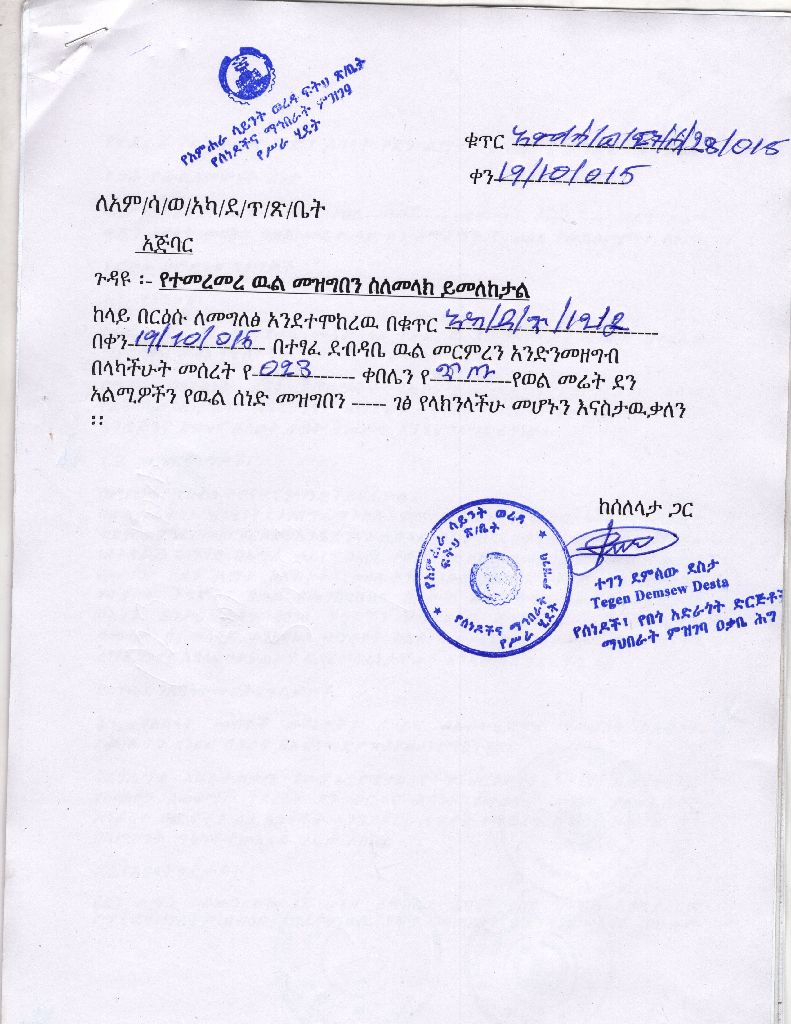 የአምሐራ ሳይንት ወረዳ ፍትህ ጽ/ቤት
የሰነዶችና ማኅበራት ምዝገባ
የሥራ ሂደት
ቁጥር /28/015
ቀን 19/10/015
ለአም/ሳ/ወ/አካ/ደ/ጥ/ጽ/ቤት
አጅባር
ጉዳዩ ፡- የተመረመረ ዉል መዝግበን ስለመላክ ይመለከታል
ከላይ በርዕሱ ለመግለፅ እንደተሞከረዉ በቁጥር አካ/ደ/ጥ/1212
በቀን 19/10/015 በተፃፈ ደብዳቤ ዉል መርምረን እንድንመዘግብ
በላካችሁት መሰረት የ 023 ቀበሌን የ የወል መሬት ደን
አልሚዎችን የዉል ሰነድ መዝግበን ----- ገፅ የላክንላችሁ መሆኑን እናስታዉቃለን
፡፡
ከሰለላታ ጋር
የአምሐራ ሳይንት ወረዳ
ፍትህ ጽ/ቤት
የሰነዶችና ማኅበራት ምዝገባ
የሥራ ሂደት
ተገን ደምሰው ደስታ
Tegen Demsew Desta
የሰነዶች፣ የበጎ አድራጎት ድርጅቶች
ማህበራት ምዝገባ ዐቃቤ ሕግ